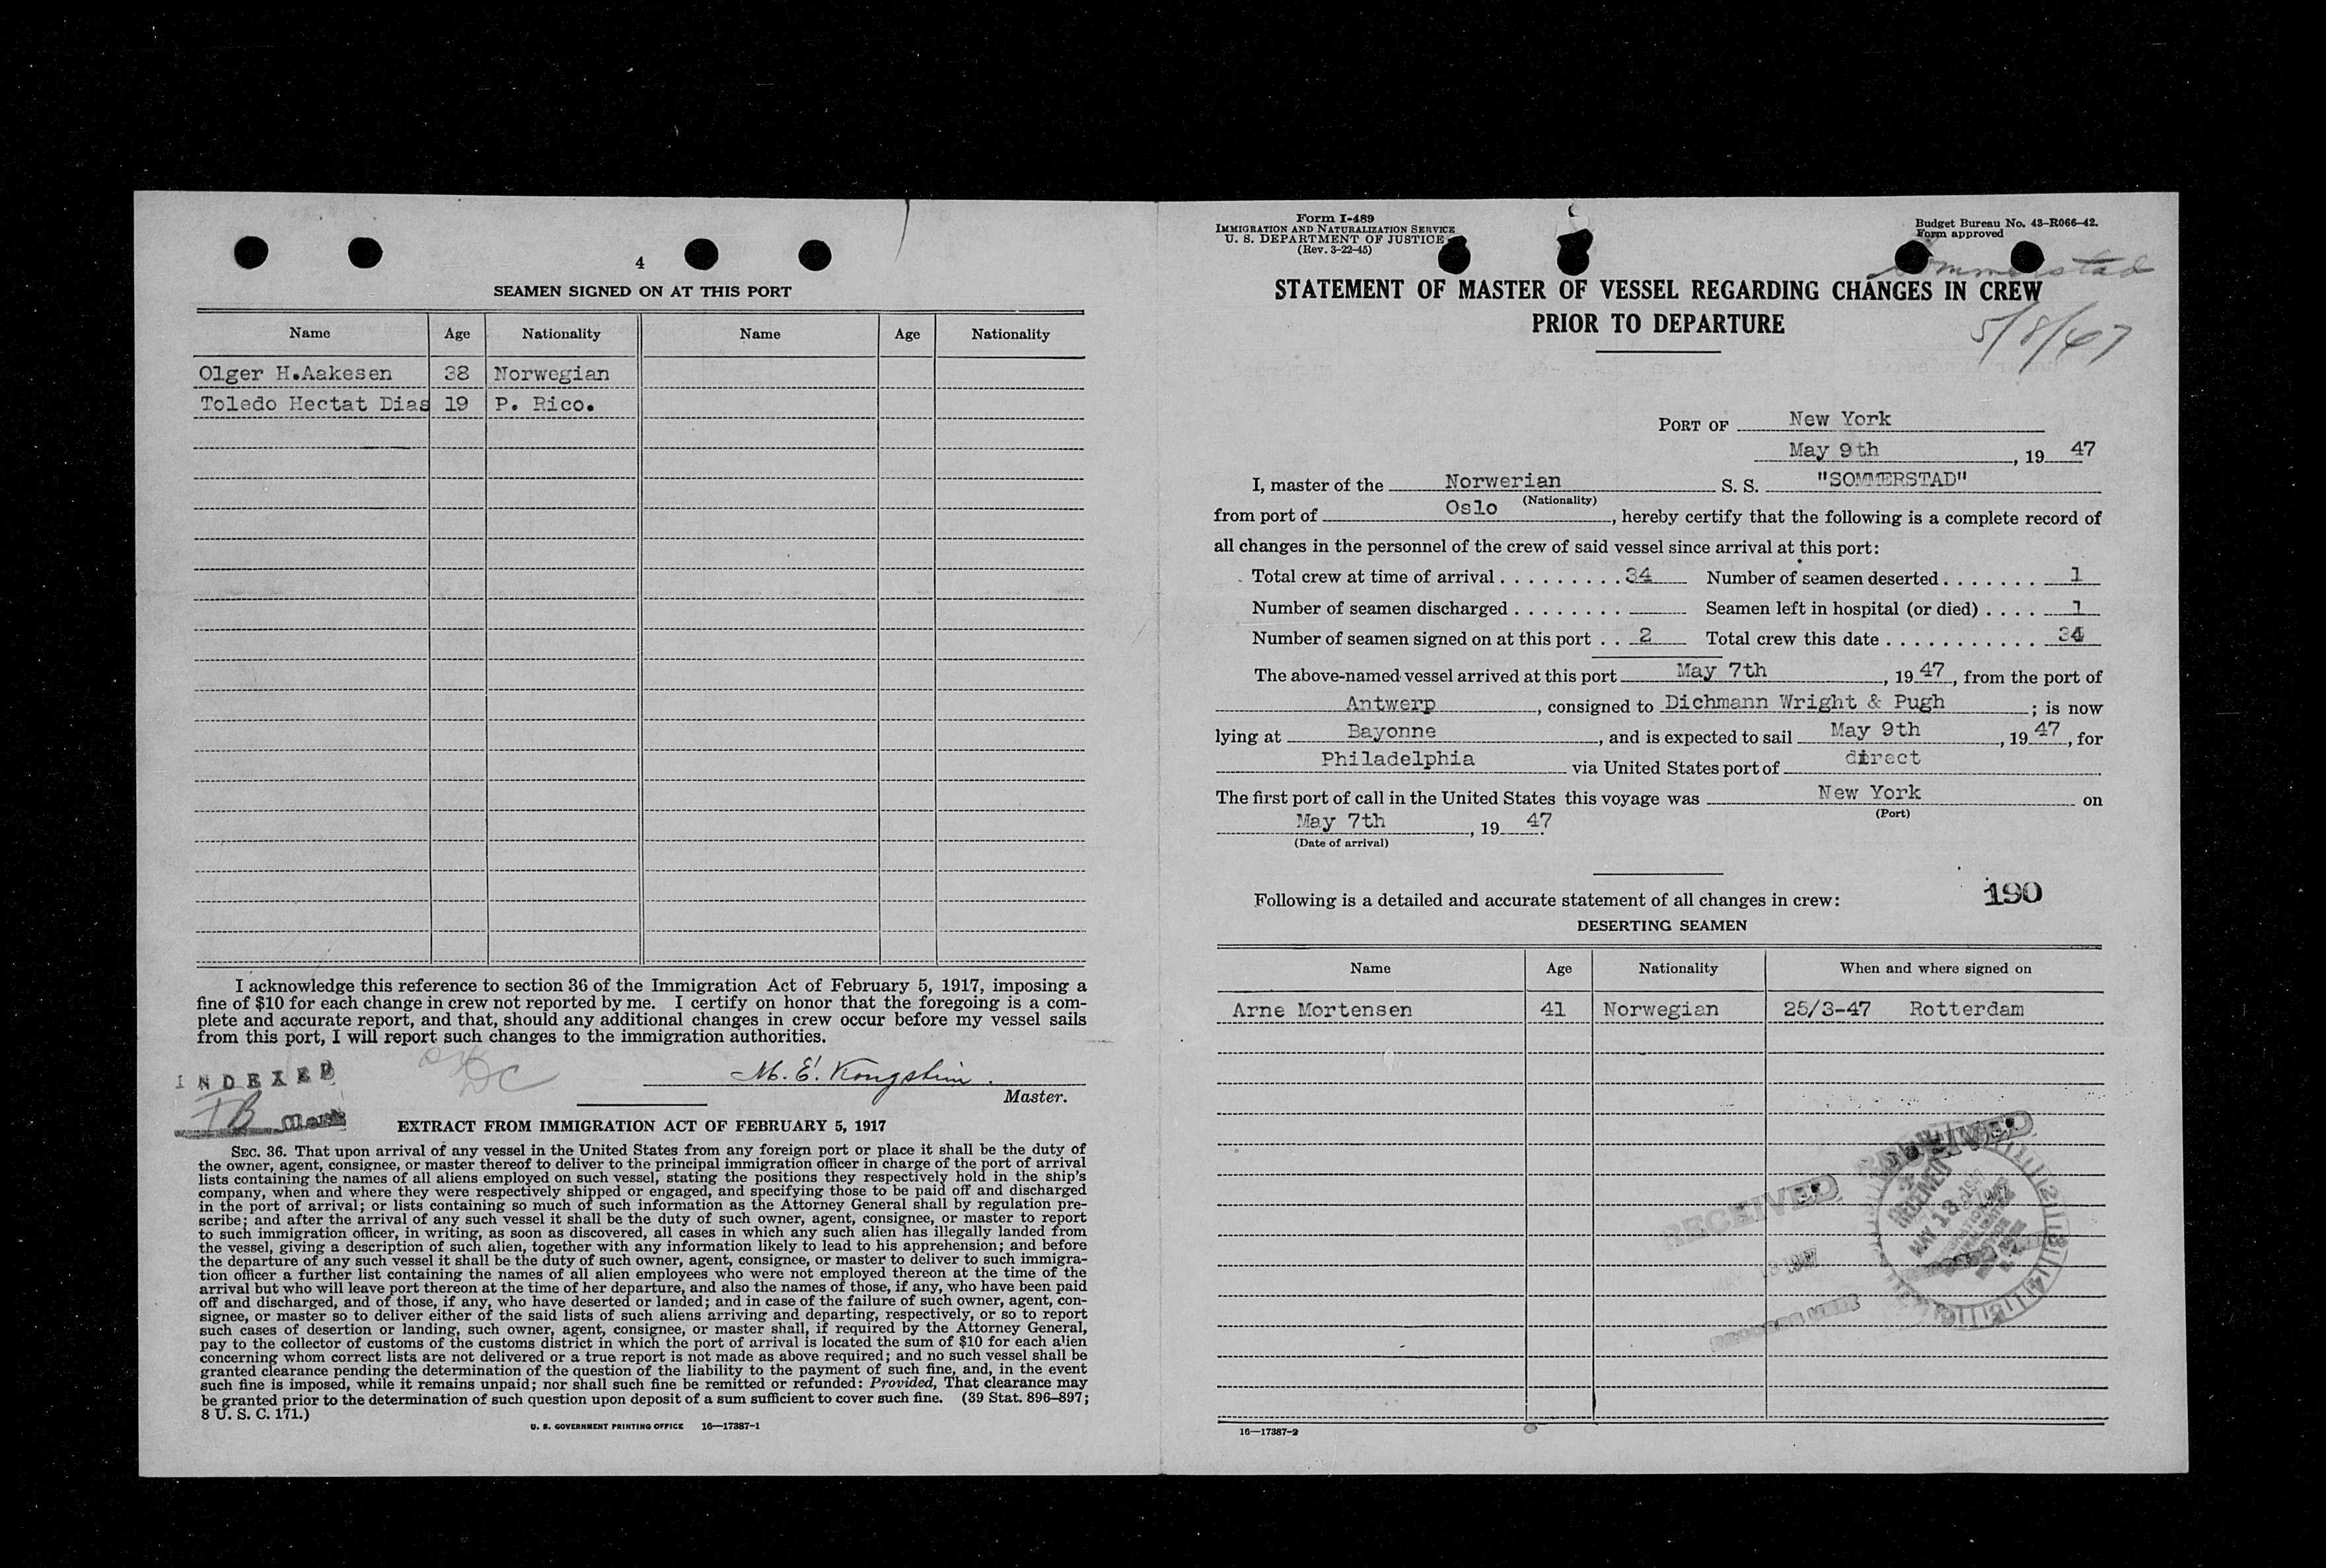 4
SEAMEN SIGNED ON AT THIS PORT
Name Age Nationality Name Age Nationality
Olger H.Aakesen 38 Norwegian
Toledo Hectat Dias 19 P. Rico.
I acknowledge this reference to section 36 of the Immigration Act of February 5, 1917, imposing a
fine of $10 for each change in crew not reported by me. I certify on honor that the foregoing is a com-
plete and accurate report, and that, should any additional changes in crew occur before my vessel sails
from this port, I will report such changes to the immigration authorities.
INDEXED
DC
M. E. Kongshim.
Master.
EXTRACT FROM IMMIGRATION ACT OF FEBRUARY 5, 1917
SEC. 36. That upon arrival of any vessel in the United States from any foreign port or place it shall be the duty of
the owner, agent, consignee, or master thereof to deliver to the principal immigration officer in charge of the port of arrival
lists containing the names of all aliens employed on such vessel, stating the positions they respectively hold in the ship's
company, when and where they were respectively shipped or engaged, and specifying those to be paid off and discharged
in the port of arrival; or lists containing so much of such information as the Attorney General shall by regulation pre-
scribe; and after the arrival of any such vessel it shall be the duty of such owner, agent, consignee, or master to report
to such immigration officer, in writing, as soon as discovered, all cases in which any such alien has illegally landed from
the vessel, giving a description of such alien, together with any information likely to lead to his apprehension; and before
the departure of any such vessel it shall be the duty of such owner, agent, consignee, or master to deliver to such immigra-
tion officer a further list containing the names of all alien employees who were not employed thereon at the time of the
arrival but who will leave port thereon at the time of her departure, and also the names of those, if any, who have been paid
off and discharged, and of those, if any, who have deserted or landed; and in case of the failure of such owner, agent, con-
signee, or master so to deliver either of the said lists of such aliens arriving and departing, respectively, or so to report
such cases of desertion or landing, such owner, agent, consignee, or master shall, if required by the Attorney General,
pay to the collector of customs of the customs district in which the port of arrival is located the sum of $10 for each alien
concerning whom correct lists are not delivered or a true report is not made as above required; and no such vessel shall be
granted clearance pending the determination of the question of the liability to the payment of such fine, and, in the event
such fine is imposed, while it remains unpaid; nor shall such fine be remitted or refunded: Provided, That clearance may
be granted prior to the determination of such question upon deposit of a sum sufficient to cover such fine. (39 Stat. 896–897;
8 U. S. C. 171.)
U. S. GOVERNMENT PRINTING OFFICE 16—17387-1
Form I-489
IMMIGRATION AND NATURALIZATION SERVICE
U. S. DEPARTMENT OF JUSTICE
(Rev. 3-22-45)
Budget Bureau No. 43-R066-42.
Form approved
Sommerstad
STATEMENT OF MASTER OF VESSEL REGARDING CHANGES IN CREW
PRIOR TO DEPARTURE
5/8/47
PORT OF New York
May 9th, 19 47
I, master of the Norwerian S. S. "SOMMERSTAD"
(Nationality)
from port of Oslo, hereby certify that the following is a complete record of
all changes in the personnel of the crew of said vessel since arrival at this port:
Total crew at time of arrival . . . . . . . . . 34 Number of seamen deserted . . . . . . . 1
Number of seamen discharged . . . . . . . . Seamen left in hospital (or died) . . . . 1
Number of seamen signed on at this port . . 2 Total crew this date . . . . . . . . . . . . 34
The above-named vessel arrived at this port May 7th, 19 47, from the port of
Antwerp, consigned to Dichmann Wright & Pugh; is now
lying at Bayonne, and is expected to sail May 9th, 19 47, for
Philadelphia via United States port of direct
The first port of call in the United States this voyage was New York on
(Port)
May 7th, 19 47.
(Date of arrival)
Following is a detailed and accurate statement of all changes in crew: 190
DESERTING SEAMEN
Name Age Nationality When and where signed on
Arne Mortensen 41 Norwegian 25/3-47 Rotterdam
RECEIVED
RECEIVED
RECEIVED
MAY 13
16—17387-2